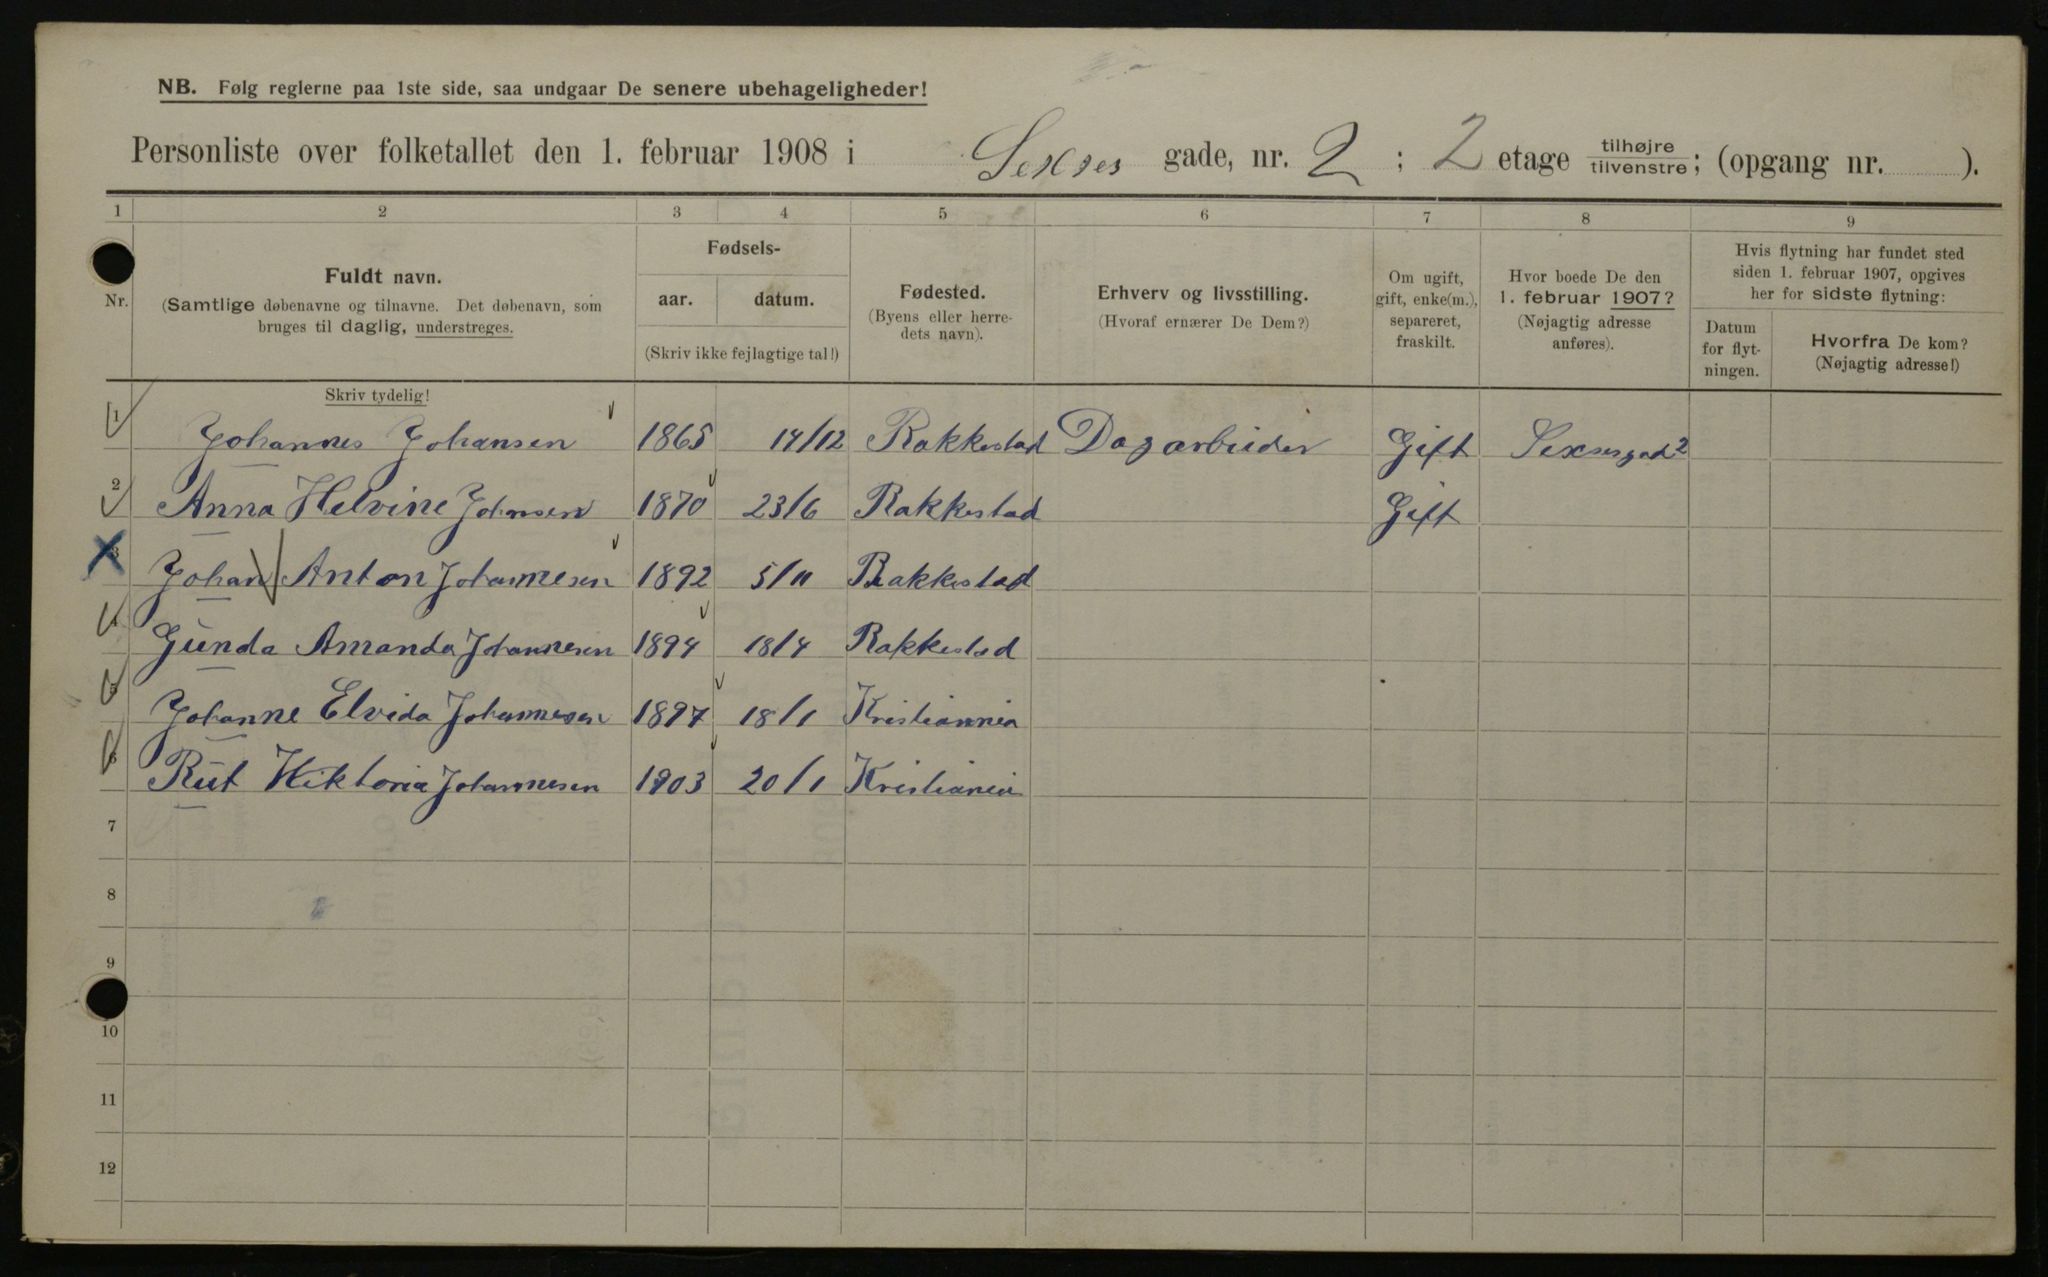 NB. Følg reglerne paa 1ste side, saa undgaar De senere ubehageligheder!
Personliste over folketallet den 1. februar 1908 i Sexses gade, nr. 2 ; 2 etage tilhøjre/tilvenstre; (opgang nr. ).
1 2 3 4 5 6 7 8 9
Nr.
Fuldt navn.
(Samtlige døbenavne og tilnavne. Det døbenavn, som
bruges til daglig, understreges.
Skriv tydelig!
Fødsels-
aar. datum.
(Skriv ikke fejlagtige tal!)
Fødested.
(Byens eller herre-
dets navn).
Erhverv og livsstilling.
(Hvoraf ernærer De Dem?)
Om ugift,
gift, enke(m.),
separeret,
fraskilt.
Hvor boede De den
1. februar 1907?
(Nøjagtig adresse
anføres).
Hvis flytning har fundet sted
siden 1. februar 1907, opgives
her for sidste flytning:
Datum
for flyt-
ningen.
Hvorfra De kom?
(Nøjagtig adresse!)
1 Johannes Johansen 1865 14/12 Rakkestad Dagarbeider Gift Sexsesgad 2
2 Anna Helvine Johnsen 1870 23/6 Rakkestad Gift
3 Johan Anton Johannesen 1892 5/11 Rakkestad
4 Gunda Amanda Johannesen 1894 18/4 Rakkestad
5 Johanne Elvida Johannesen 1897 18/1 Kristiannia
6 Rut Wiktoria Johannesen 1903 20/1 Kristiania
7
8
9
10
11
12